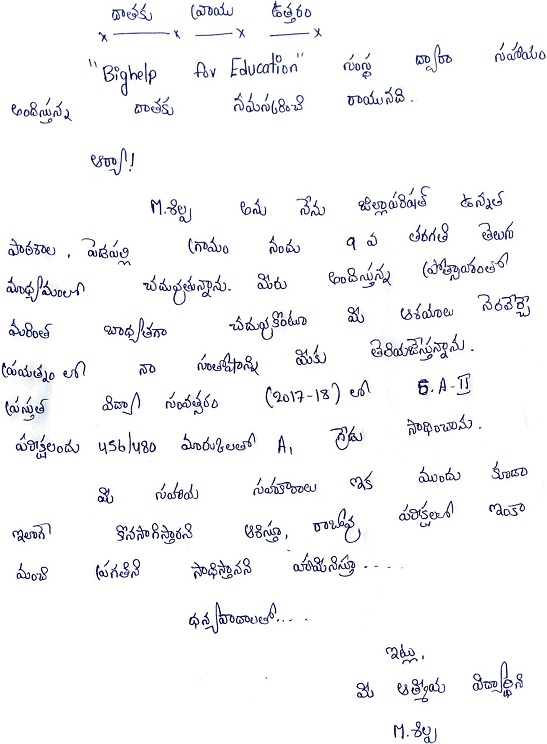 దాతకు వ్రాయు ఉత్తరం
"Bighelp for Education" సంస్థ ద్వారా సహాయం
అందిస్తున్న దాతకు నమస్కరించి రాయునది.
ఆర్యా!
M.శిల్ప అను నేను జిల్లాపరిషత్ ఉన్నత
పాఠశాల, పెదపల్లి గ్రామం నందు 9 వ తరగతి తెలుగు
మాధ్యమంలో చదువుతున్నాను. మీరు అందిస్తున్న ప్రోత్సాహంతో
మరింత బాధ్యతగా చదువుకొంటూ మీ ఆశయాలు నెరవేర్చె
ప్రయత్నం లో నా సంతోషాన్ని మీకు తెరియజేస్తున్నాను.
ప్రస్తుత విద్యా సంవత్సరం (2017-18) లో S.A-II
పరీక్షలందు 456/480 మారుకులతో A1 గ్రేడు సాధించాను.
మీ సహాయ సహకారాలు ఇక ముందు కూడా
ఇలాగే కొనసాగిస్తారని ఆశిస్తూ, రాబోవు పరీక్షలలో ఇంకా
మంచి ప్రగతిని సాధిస్తానని హామినిస్తూ....
ధన్యవాదాలతో....
ఇట్లు,
మీ ఆత్మీయ విద్యార్థిని
M.శిల్ప